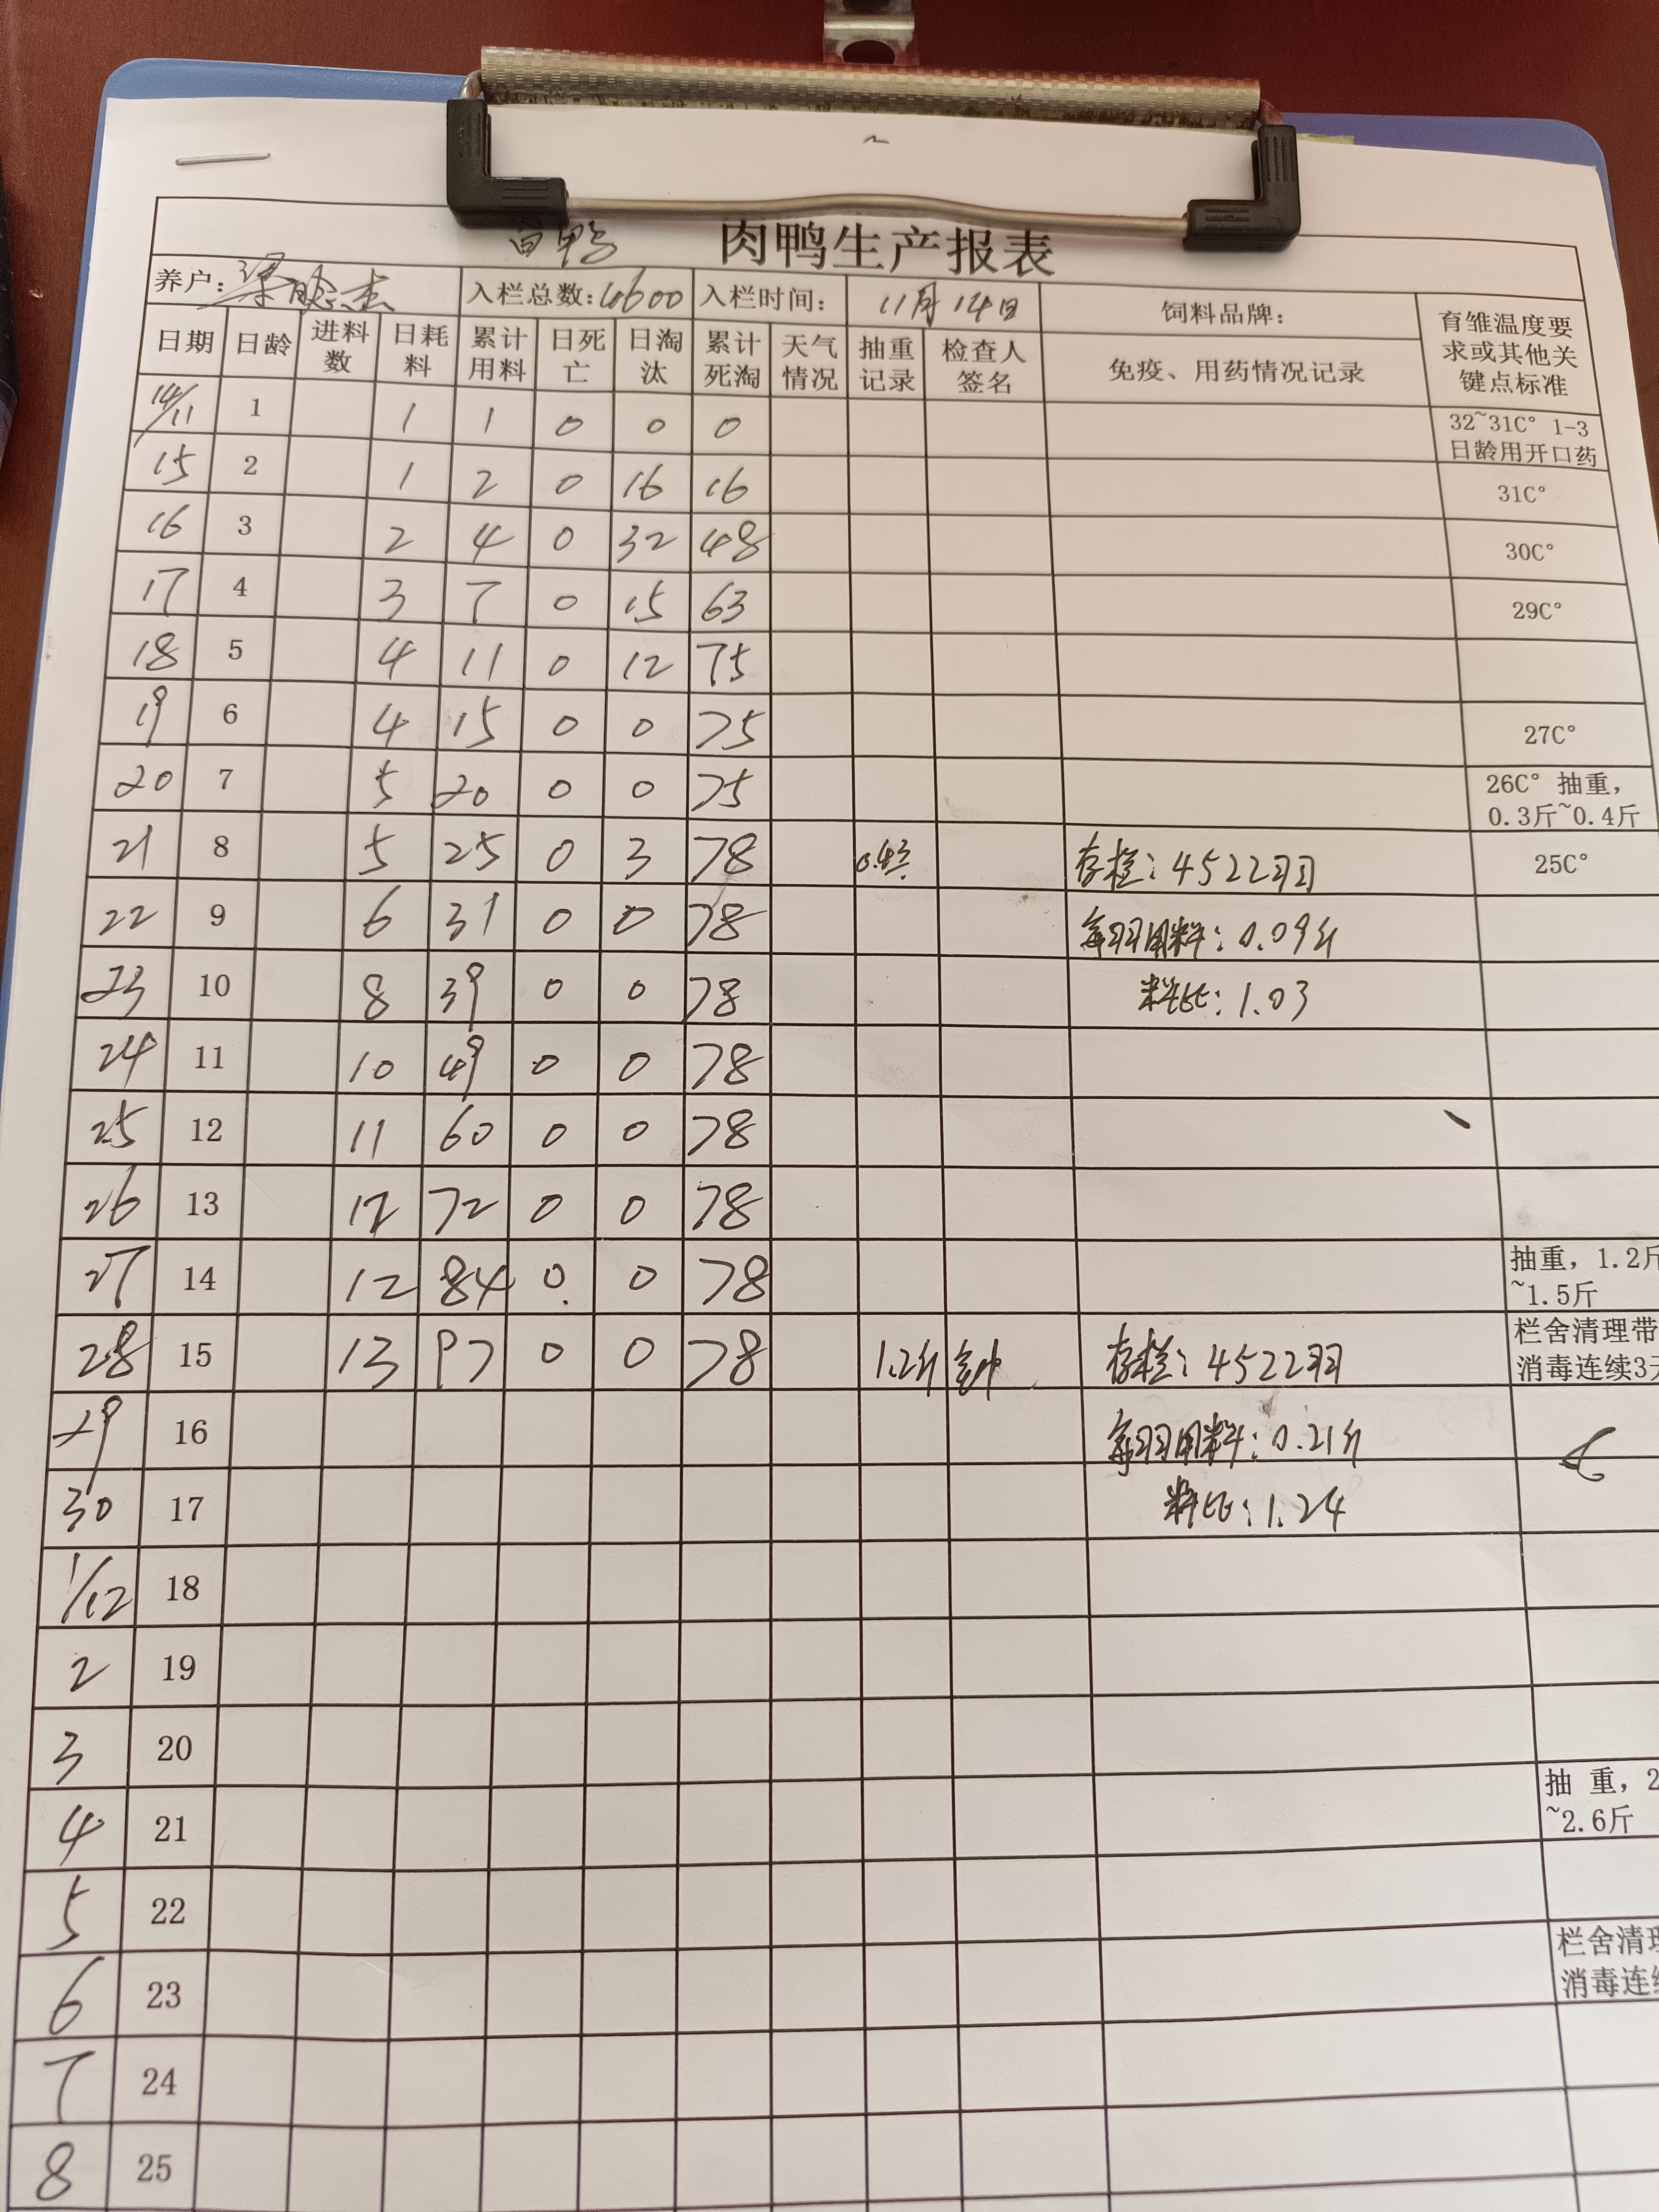 白鸭 肉鸭生产报表
养户: 入栏总数: 4600 入栏时间: 11月14日 饲料品牌: 育雏温度要求或其他关键点标准
日期 日龄 进料数 日耗料 累计用料 日死亡 日淘汰 累计死淘 天气情况 抽重记录 检查人签名 免疫、用药情况记录
14/11 1 1 1 0 0 0 32~31C° 1-3日龄用开口药
15 2 1 2 0 16 16 31C°
16 3 2 4 0 32 48 30C°
17 4 3 7 0 15 63 29C°
18 5 4 11 0 12 75
19 6 4 15 0 0 75 27C°
20 7 5 20 0 0 75 26C° 抽重，0.3斤~0.4斤
21 8 5 25 0 3 78 存栏: 4522羽 25C°
22 9 6 31 0 0 78 每羽用料: 0.09斤
23 10 8 39 0 0 78 料比: 1.03
24 11 10 49 0 0 78
25 12 11 60 0 0 78
26 13 12 72 0 0 78
27 14 12 84 0 0 78 抽重，1.2斤~1.5斤
28 15 13 97 0 0 78 1.2斤 存栏: 4522羽 栏舍清理带消毒连续3天
29 16 每羽用料: 0.21斤
30 17 料比: 1.24
1/12 18
2 19
3 20
4 21 抽 重，2~2.6斤
5 22
6 23 栏舍清理消毒连续
7 24
8 25